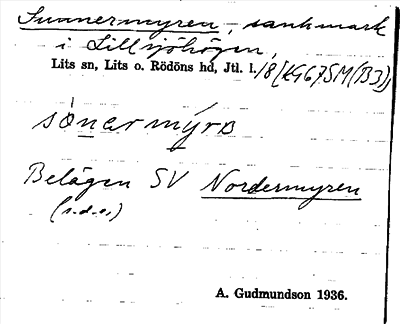 Sunnermyren, sankmark
i Lillsjöhögen,
Lits sn, Lits o. Rödöns hd, Jtl. l. /8 [KG67SM(B3)]
sònarmýrɐ
Belägen SV Nordermyren
(s.d.o.)
A. Gudmundson 1936.